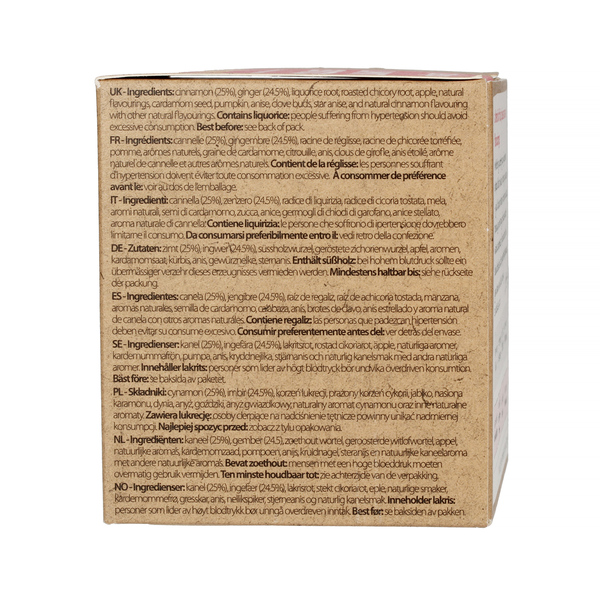 UK - Ingredients: cinnamon (25%), ginger (24.5%), liquorice root, roasted chicory root, apple, natural
flavourings, cardamom seed, pumpkin, anise, clove buds, star anise, and natural cinnamon flavouring
with other natural flavourings. Contains liquorice: people suffering from hypertension should avoid
excessive consumption. Best before: see back of pack.
FR - Ingrédients: cannelle (25%), gingembre (24.5%), racine de réglisse, racine de chicorée torréfiée,
pomme, arômes naturels, graine de cardamome, citrouille, anis, clous de girofle, anis étoilé, arôme
naturel de cannelle et autres arômes naturels. Contient de la réglisse: les personnes souffrant
d'hypertension doivent éviter toute consommation excessive. À consommer de préférence
avant le: voir au dos de l'emballage.
IT - Ingredienti: cannella (25%), zenzero (24.5%), radice di liquirizia, radice di cicoria tostata, mela,
aromi naturali, semi di cardamomo, zucca, anice, germogli di chiodi di garofano, anice stellato,
aroma naturale di cannella Contiene liquirizia: le persone che soffrono di ipertensione dovrebbero
limitarne il consumo. Da consumarsi preferibilmente entro il: vedi retro della confezione.
DE - Zutaten: zimt (25%), ingwer (24.5%), süssholzwurzel, geröstete zichorienwurzel, apfel, aromen,
kardamomsaat, kürbis, anis, gewürznelke, sternanis. Enthält süßholz: bei hohem blutdruck sollte ein
übermässiger verzehr dieses erzeugnisses vermieden werden. Mindestens haltbar bis: siehe rückseite
der packung.
ES - Ingredientes: canela (25%), jengibre (24.5%), raíz de regaliz, raíz de achicoria tostada, manzana,
aromas naturales, semilla de cardamomo, calabaza, anis, brotes de clavo, anis estrellado y aroma natural
de canela con otros aromas naturales. Contiene regaliz: las personas que padezcan hipertensión
deben evitar su consumo excesivo. Consumir preferentemente antes del: ver detrás del envase.
SE - Ingredienser: kanel (25%), ingefära (24.5%), lakritsrot, rostad cikoriarot, äpple, naturliga aromer,
kardemummafrön, pumpa, anis, kryddnejlika, stjärnanis och naturlig kanelsmak med andra naturliga
aromer. Innehåller lakrits: personer som lider av högt blodtryck bör undvika överdriven konsumtion.
Bäst före: se baksida av paketet.
PL - Składniki: cynamon (25%), imbir (24.5%), korzeń lukrecji, prażony korzeń cykorii, jabłko, nasiona
karamonu, dynia, anyż, goździki, anyż gwiazdkowy, naturalny aromat cynamonu oraz inne naturalne
aromaty. Zawiera lukrecję: osoby cierpiące na nadciśnienie tętnicze powinny unikać nadmiernej
konsumpcji. Najlepiej spożyc przed: zobacz z tyłu opakowania.
NL - Ingrediënten: kaneel (25%), gember (24.5), zoethout wortel, geroosterde witlofwortel, appel,
natuurlijke aroma's, kardemomzaad, pompoen, anijs, kruidnagel, steranijs en natuurlijke kaneelaroma
met andere natuurlijke aroma's. Bevat zoethout: mensen met een hoge bloeddruk moeten
overmatig gebruik vermijden. Ten minste houdbaar tot: zie achterzijde van de verpakking.
NO - Ingredienser: kanel (25%), ingefær (24.5%), lakrisrot, stekt cikoriarot, eple, naturlige smaker,
kardemommefrø, gresskar, anis, nellikspiker, stjerneanis og naturlig kanelsmak. Inneholder lakris:
personer som lider av høyt blodtrykk bør unngå overdreven inntak. Best før: se baksiden av pakken.